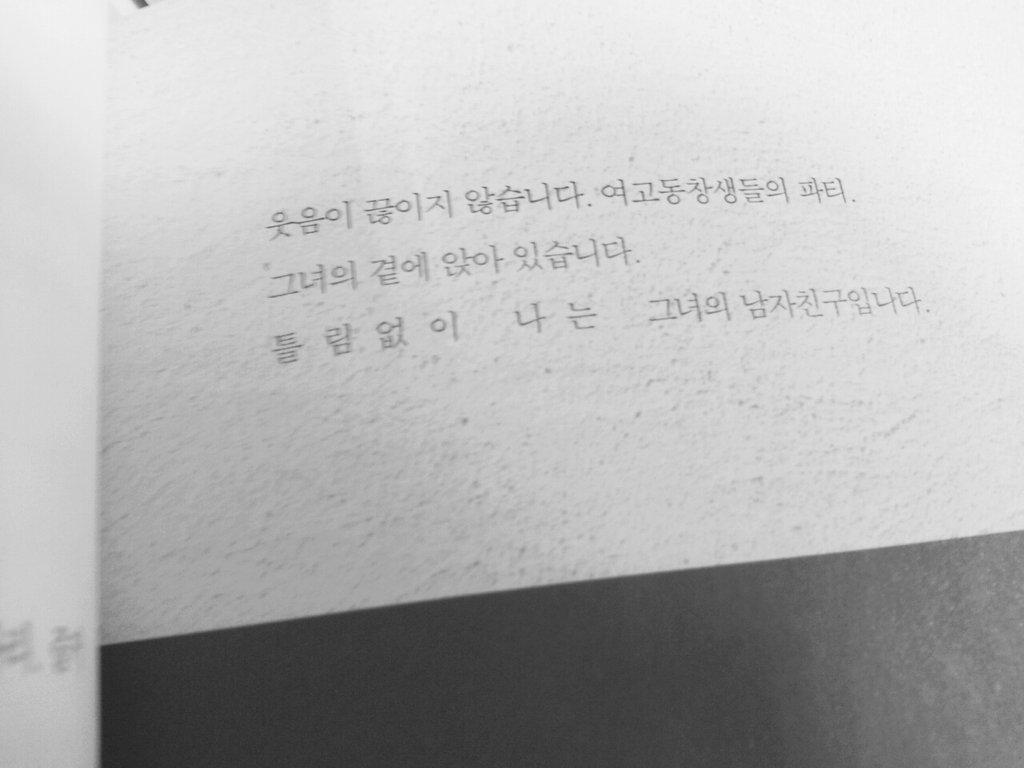 웃음이 끊이지 않습니다. 여고동창생들의 파티.
그녀의 곁에 앉아 있습니다.
틀 림 없 이 나 는 그녀의 남자친구입니다.